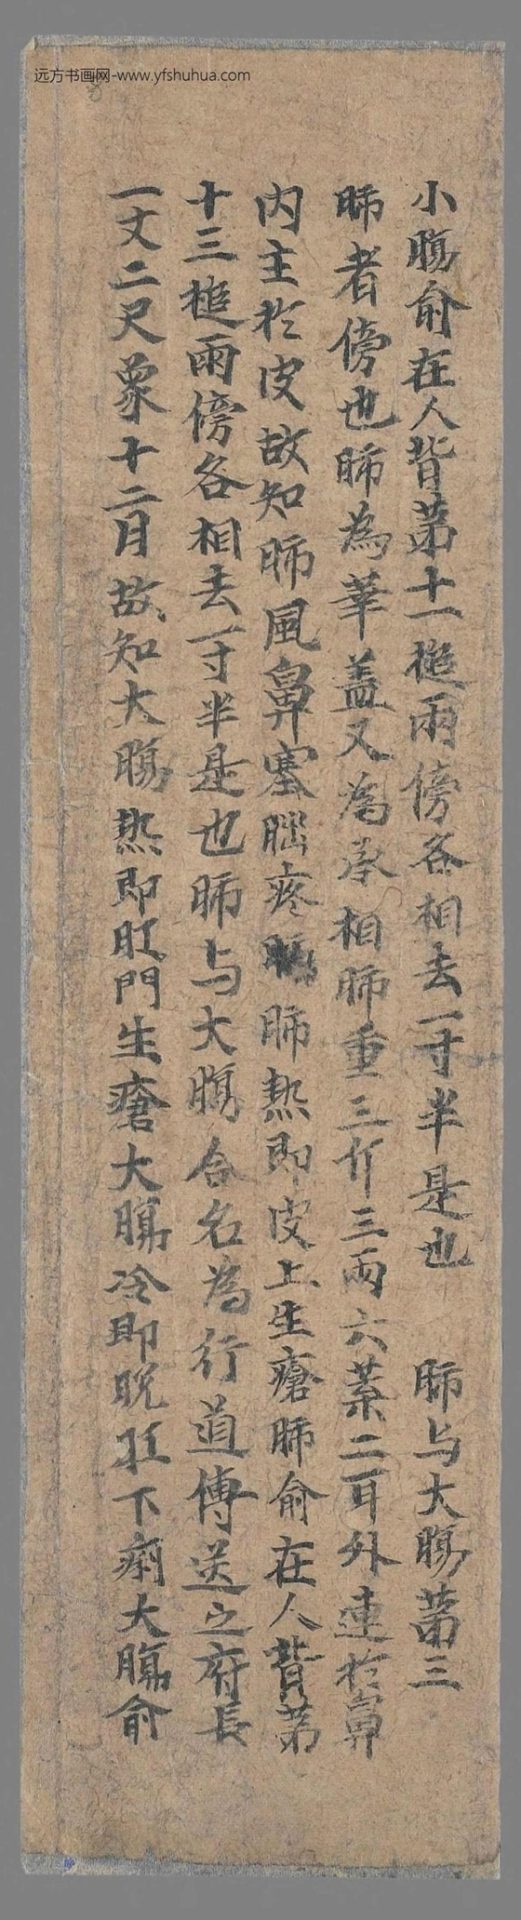 远方书画网-www.yfshuhua.com
小膓俞在人背苐十一搥兩傍各相去一寸半是也 肺与大膓苐三
肺者傍也肺為華盖又為承相肺重三斤三兩六葉二耳外連扵鼻
内主扵皮故知肺風鼻塞 疼 肺热即皮上生瘡肺俞在人背苐
十三搥兩傍各相去一寸半是也肺与大膓合名為行道傳送之府長
一丈二尺象十二月故知大膓热即肛門生瘡大膓冷即脱肛下痢大膓俞